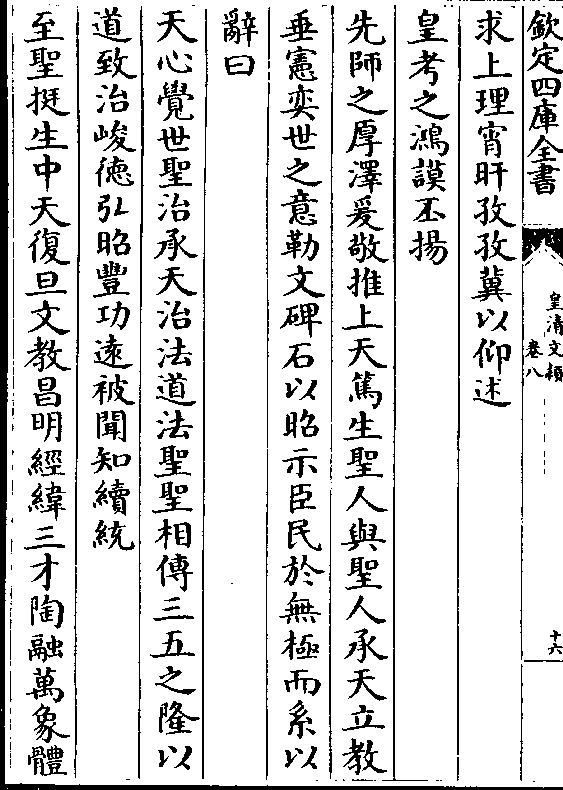 欽定四庫全書
皇清文穎
卷八
十六
求上理宵旰孜孜冀以仰述
皇考之鴻謨丕揚
先師之厚澤爰敬推上天篤生聖人與聖人承天立教
垂憲奕世之意勒文碑石以昭示臣民於無極而系以
辭曰
天心覺世聖治承天治法道法聖聖相傳三五之隆以
道致治峻德弘昭豐功遠被聞知續統
至聖挺生中天復旦文教昌明經緯三才陶融萬象體